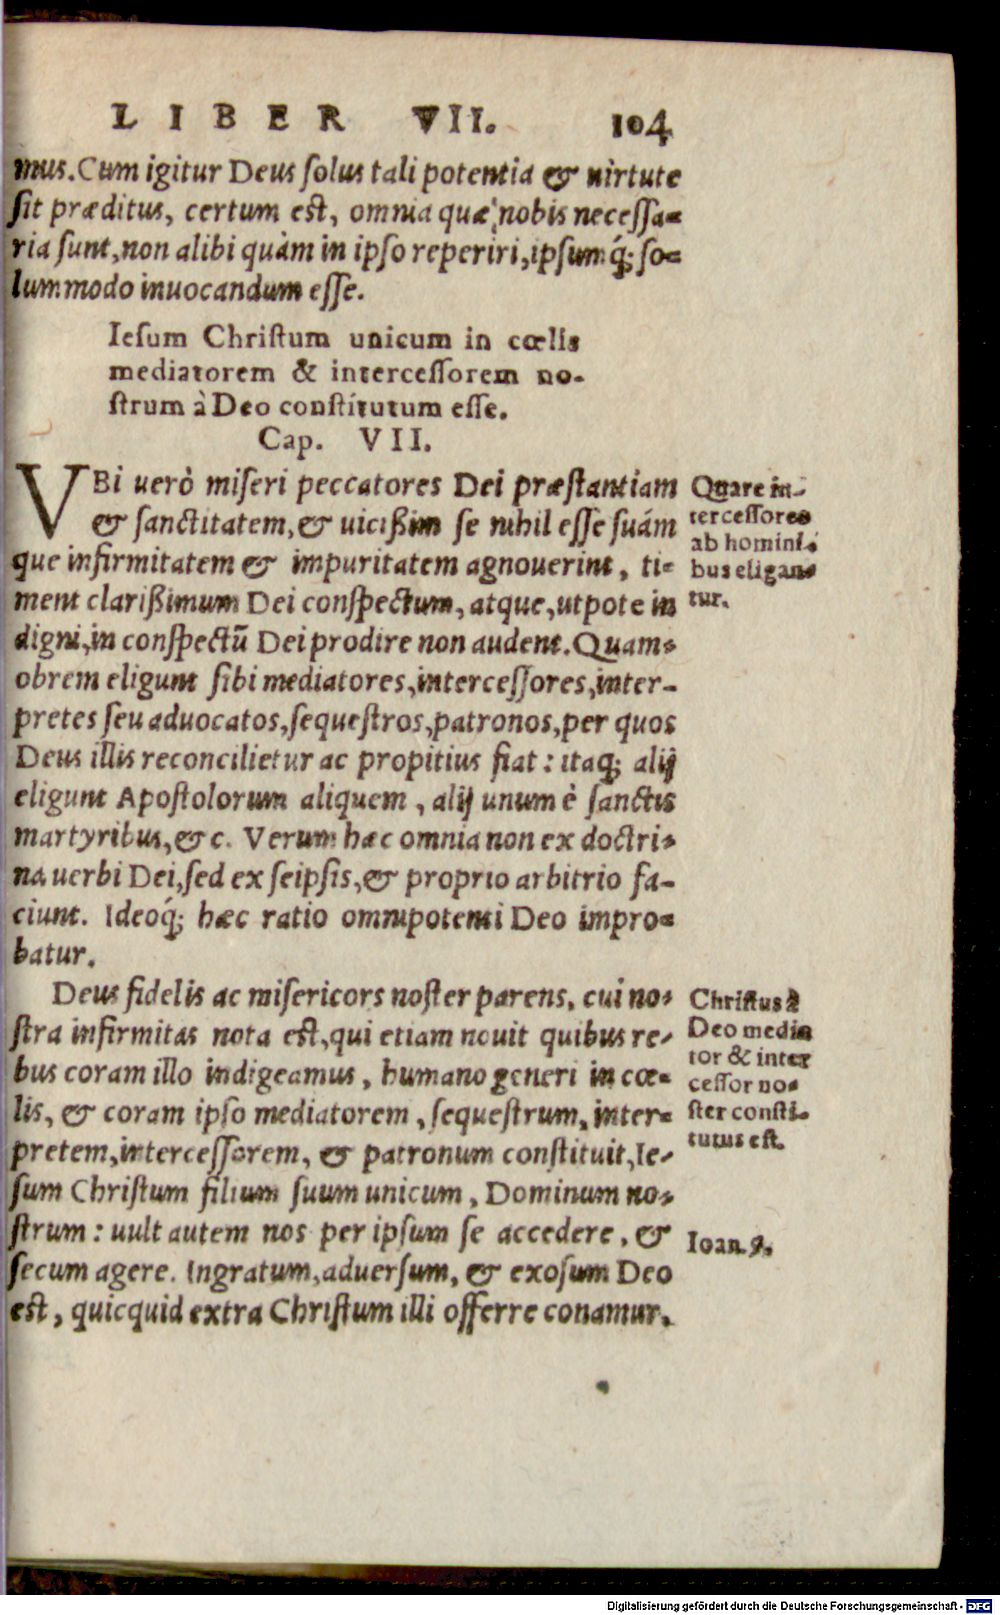 LIBER VII. 104
mus. Cum igitur Deus ſolus tali potentia & uirtute
ſit præditus, certum eſt, omnia quæ nobis neceſſa-
ria ſunt, non alibi quàm in ipſo reperiri, ipſumq́; ſo-
lummodo inuocandum eſſe.
Ieſum Chriſtum unicum in cœlis
mediatorem & interceſſorem no-
ſtrum à Deo conſtitutum eſſe.
Cap. VII.
VBi uerò miſeri peccatores Dei præſtantiam
& ſanctitatem, & uiciſſim ſe nihil eſſe ſuám
que infirmitatem & impuritatem agnouerint, ti-
ment clariſſimum Dei conſpectum, atque, utpote in
digni, in conſpectũ Dei prodire non audent. Quam-
obrem eligunt ſibi mediatores, interceſſores, inter-
pretes ſeu aduocatos, ſequeſtros, patronos, per quos
Deus illis reconcilietur ac propitius fiat: itaq; alij
eligunt Apoſtolorum aliquem, alij unum è ſanctis
martyribus, & c. Verum hæc omnia non ex doctri-
na uerbi Dei, ſed ex ſeipſis, & proprio arbitrio fa-
ciunt. Ideoq́; hæc ratio omnipotenti Deo impro-
batur.
Deus fidelis ac miſericors noſter parens, cui no-
ſtra infirmitas nota eſt, qui etiam nouit quibus re-
bus coram illo indigeamus, humano generi in cœ-
lis, & coram ipſo mediatorem, ſequeſtrum, inter-
pretem, interceſſorem, & patronum conſtituit, Ie-
ſum Chriſtum filium ſuum unicum, Dominum no-
ſtrum: uult autem nos per ipſum ſe accedere, &
ſecum agere. Ingratum, aduerſum, & exoſum Deo
eſt, quicquid extra Chriſtum illi offerre conamur.
Quare in-
terceſſores
ab homini-
bus eligan-
tur.
Chriſtus à
Deo media
tor & inter
ceſſor no-
ſter conſti-
tutus eſt.
Ioan. 9.
Digitalisierung gefördert durch die Deutsche Forschungsgemeinschaft - DFG